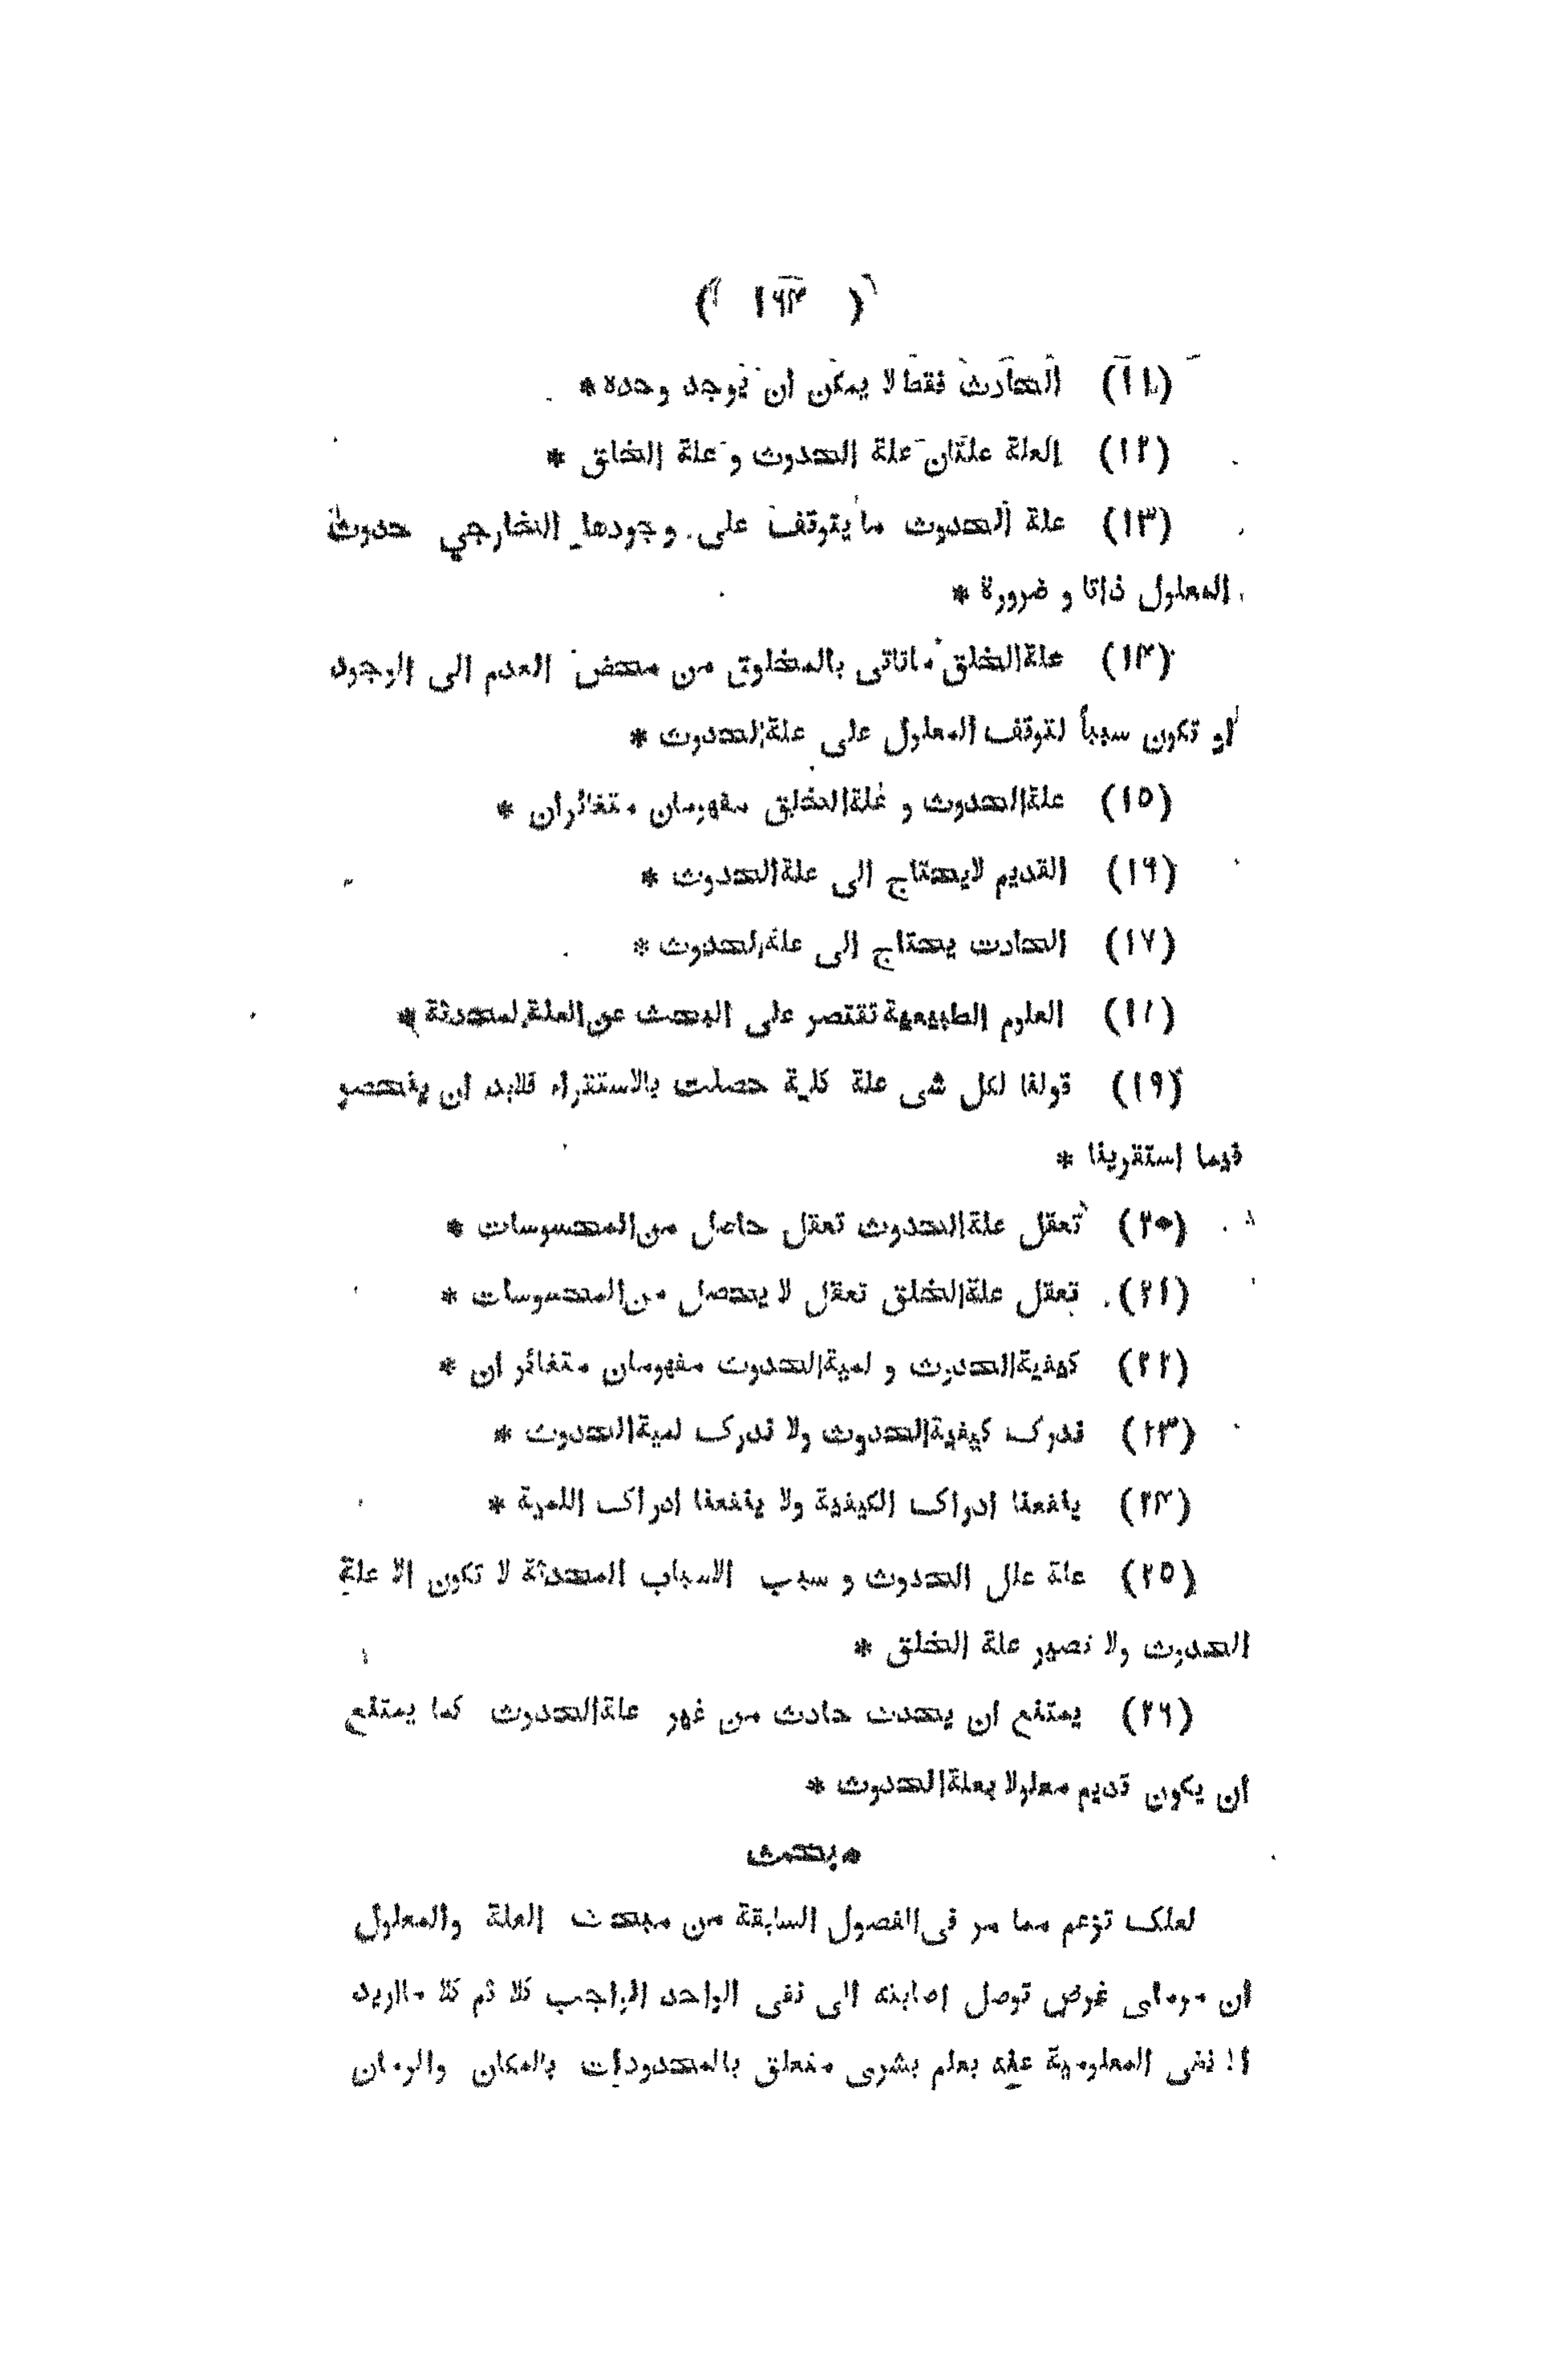 ( ١٦٣ )
(١١) الحادث فقط لا يمكن ان يوجد وحده *
(١٢) العلة علتان علة الحدوث و علة الخلق *
(١٣) علة الحدوث ما يتوقف على وجودها الخارجي حدوث
المعلول ذاتا و ضرورة *
(١٤) علة الخلق ماتاتى بالمخلوق من محض العدم الى الوجود
او تكون سبباً لتوقف المعلول على علة الحدوث *
(١٥) علة الحدوث و علة الخلق مفهومان متغائران *
(١٦) القديم لايحتاج الى علة الحدوث *
(١٧) الحادث يحتاج الى علة الحدوث *
(١٨) العلوم الطبيعية تقتصر على البحث عن العلة المحدثة *
(١٩) قولنا لكل شى علة كلية حصلت بالاستقراء فلابد ان ينحصر
فيما استقرينا *
(٢٠) تعقل علة الحدوث تعقل حاصل من المحسوسات *
(٢١) تعقل علة الخلق تعقل لا يحصل من المحسوسات *
(٢٢) كيفية الحدوث و لمية الحدوث مفهومان متغائر ان *
(٢٣) ندرك كيفية الحدوث ولا ندرك لمية الحدوث *
(٢٤) ينفعنا ادراك الكيفية ولا ينفعنا ادراك اللمية *
(٢٥) علة علل الحدوث و سبب الاسباب المحدثة لا تكون الا علة
الحدوث ولا تصير علة الخلق *
(٢٦) يمتنع ان يحدث حادث من غير علة الحدوث كما يمتنع
ان يكون قديم معلولا بعلة الحدوث *
* بحث
لعلك تزعم مما مر فى الفصول السابقة من مبحث العلة والمعلول
ان مرماى غرض توصل اصابته الى نفى الواحد الواجب كلا ثم كلا مااريد
الا نفى المعلومية عنه بعلم بشرى متعلق بالمحدودات بالمكان والزمان